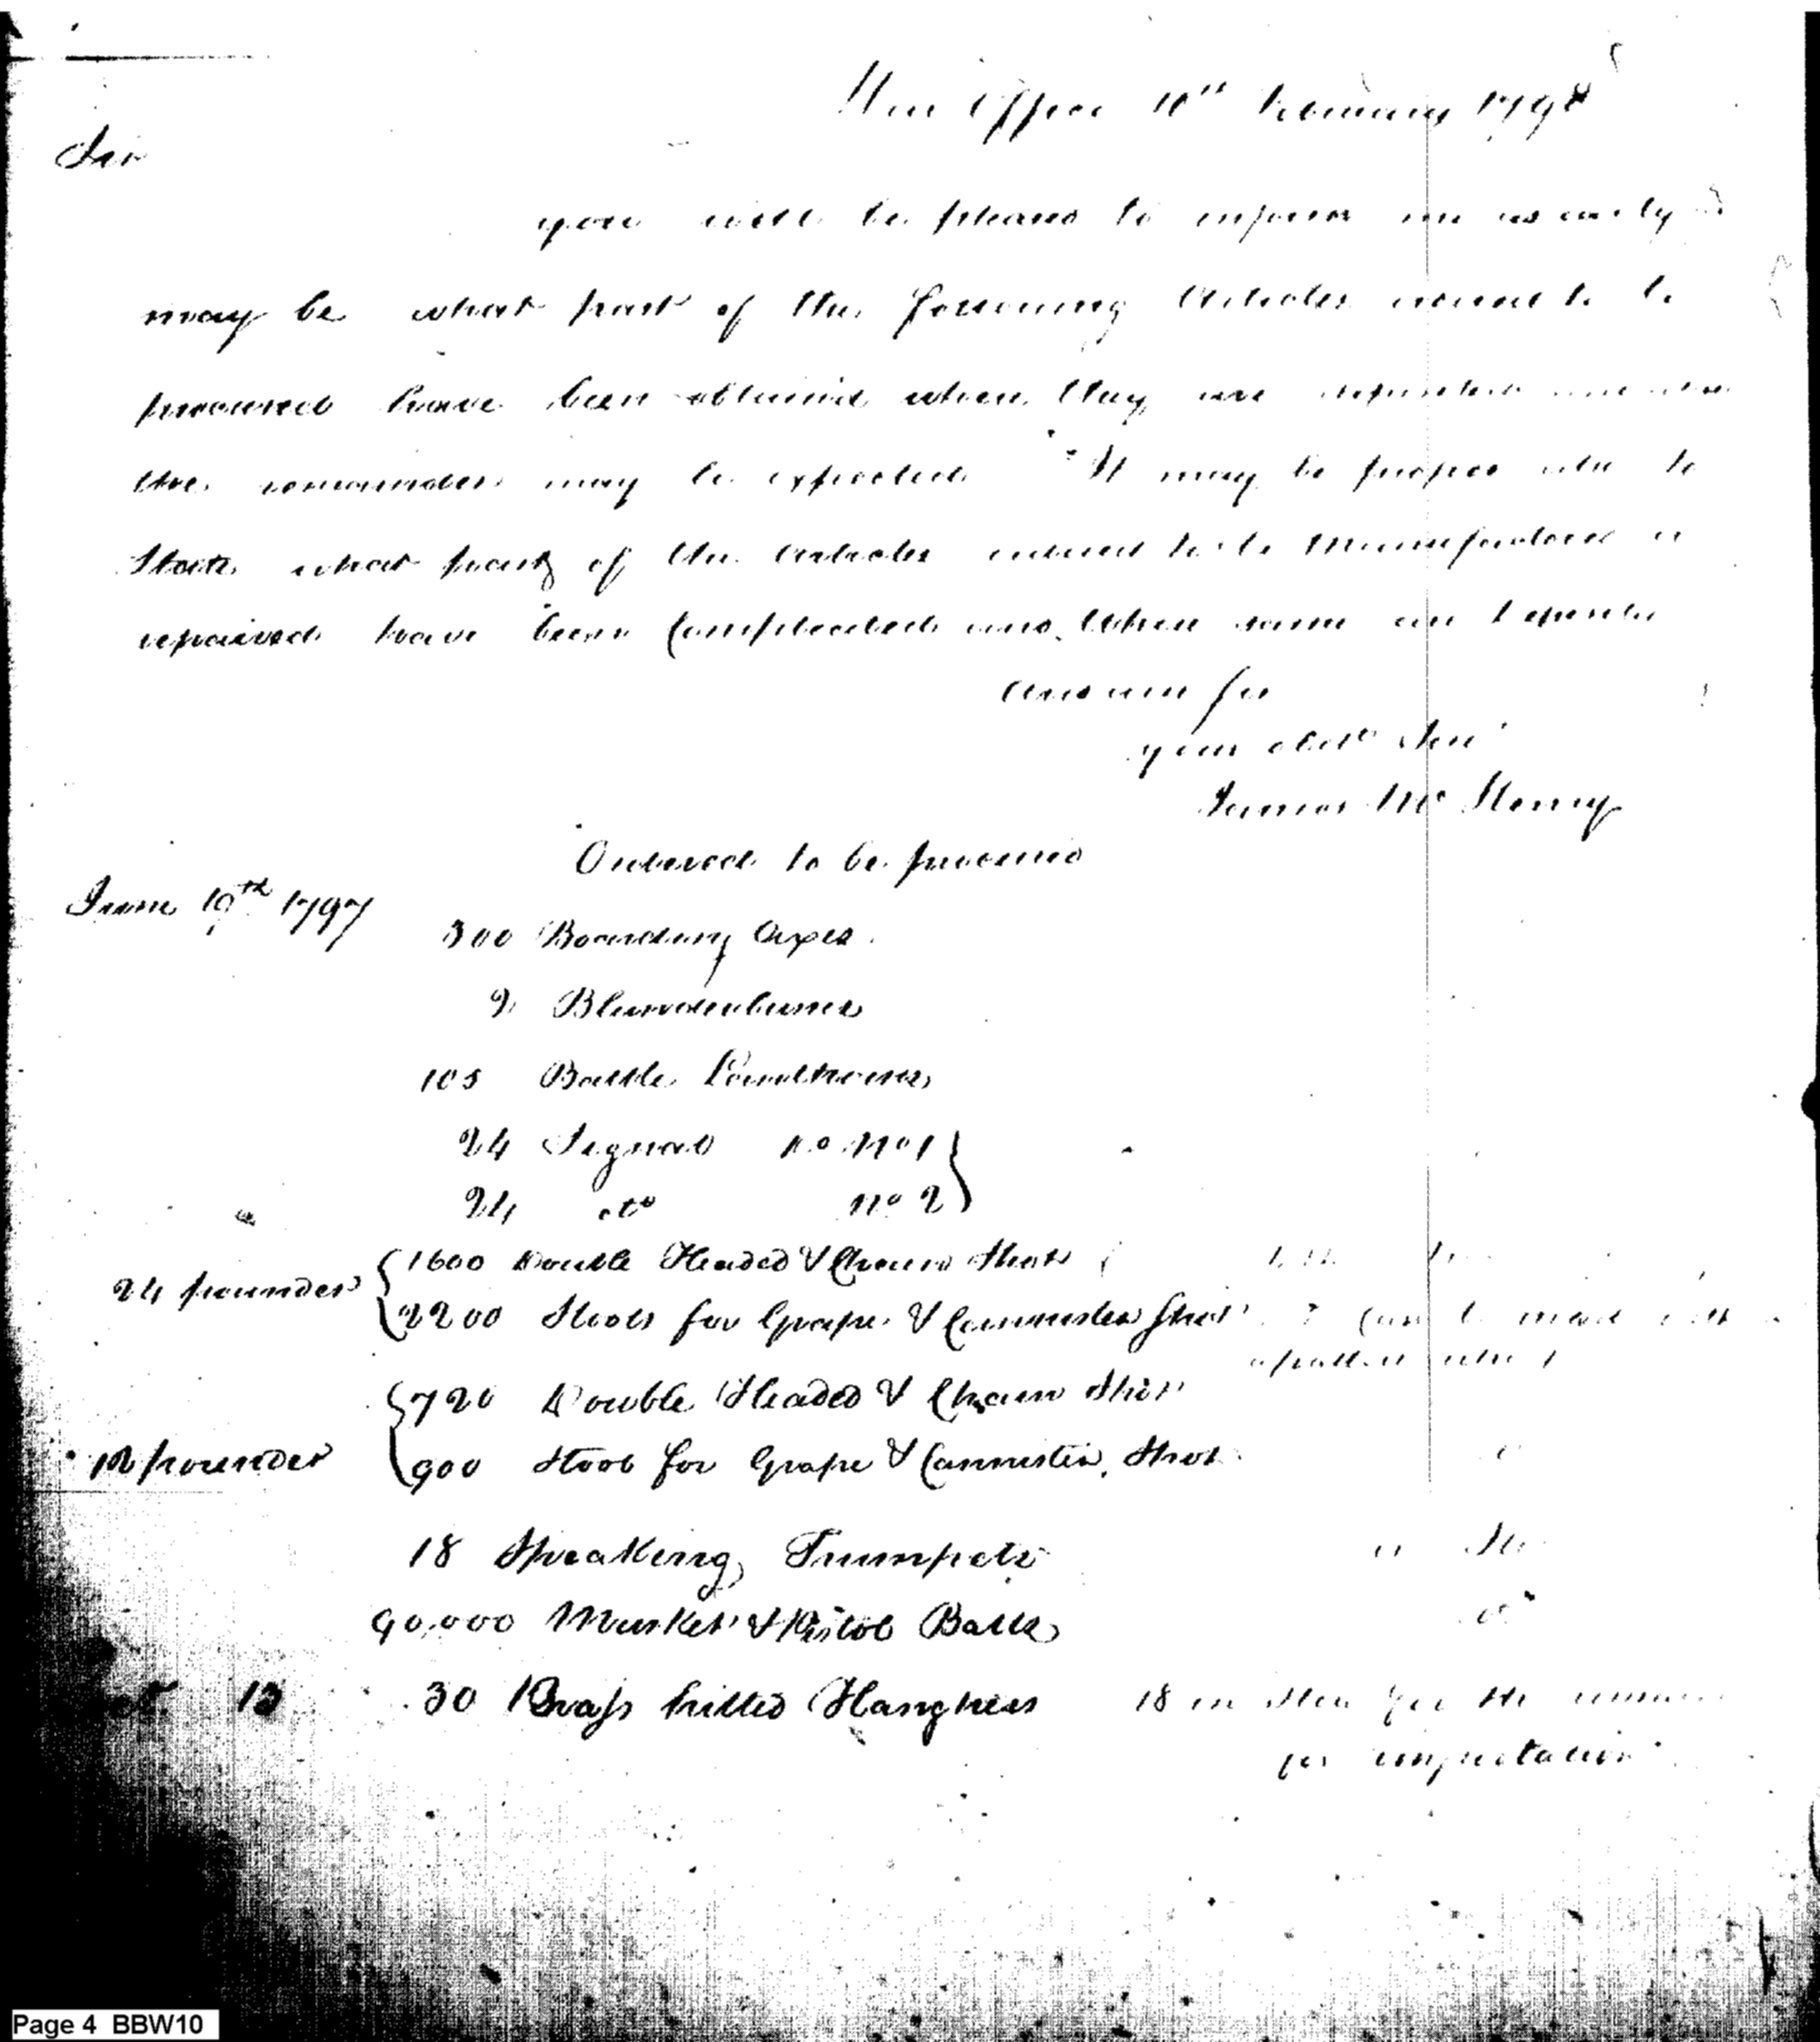 War Office 10th February 1798
Sir
you will be pleased to inform me as early as
may be what part of the following Articles to be
procured have been obtained when they are deposited and when
the remainder may be expected It may be proper also to
State what part of the Articles to be Manufactured or
repaired have been Compleated and when same
and am Sir
your obdt Servt
James McHenry
Ordered to be procured
June 19th 1797
300 Boarding Axes
9 Blunderbusses
105 Battle Lanthorns
24 Signal Do No 1
24 do No 2
24 pounder
1600 Double Headed & Chain Shot
2200 Stools for Grape & Cannister Shot
720 Double Headed & Chain Shot
12 pounder
900 Stools for Grape & Cannister Shot
18 Speaking Trumpets
90,000 Musket & Pistol Balls
13
30 Brass hilted Hanghers 18 in Store
for importation
Page 4 BBW10